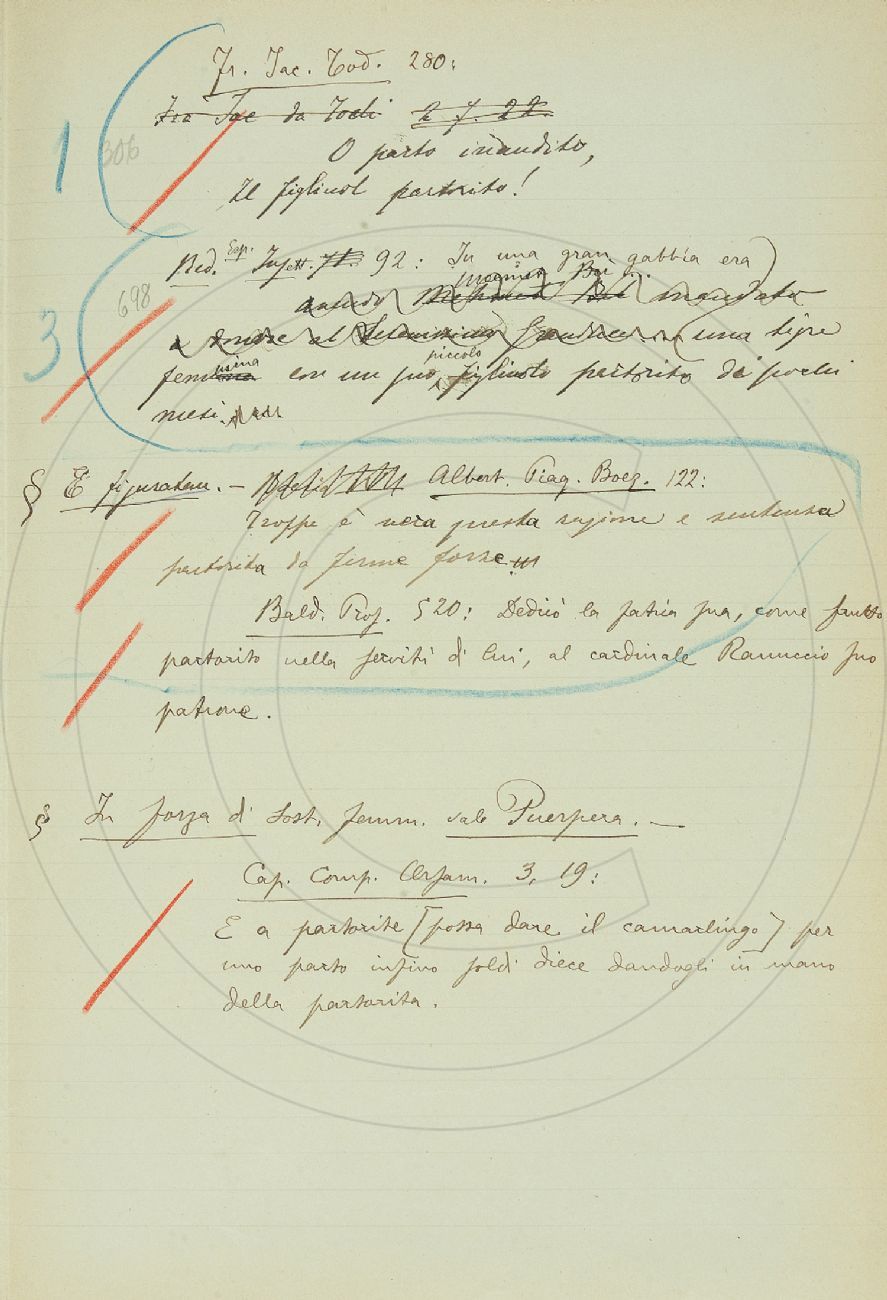 Fr. Iac. Tod. 280:
Fra Iac da Todi 2 f. 22
1 306
O parto inaudito,
Il figliuol partorito!
Red. Esp. Insett. 71. 92: In una gran gabbia era
698
avendo mandato
3
a donare al Serenissimo Granduca una tigre
femmina con un suo piccolo figliuolo partorito di pochi
mesi.
§ E figuratam. — Albert. Piag. Boez. 122:
Troppo è vera questa ragione e sentenza
partorita da ferme forze
Bald. Pros. 520: Dedicò la patria sua, come frutto
partorito nella servitù di lui, al cardinale Ranuccio suo
patrone.
§ In forza di Sost. femm. vale Puerpera. —
Cap. Comp. Orsam. 3, 19:
E a partorite [possa dare il camarlingo] per
uno parto infino soldi diece dandogli in mano
della partorita.